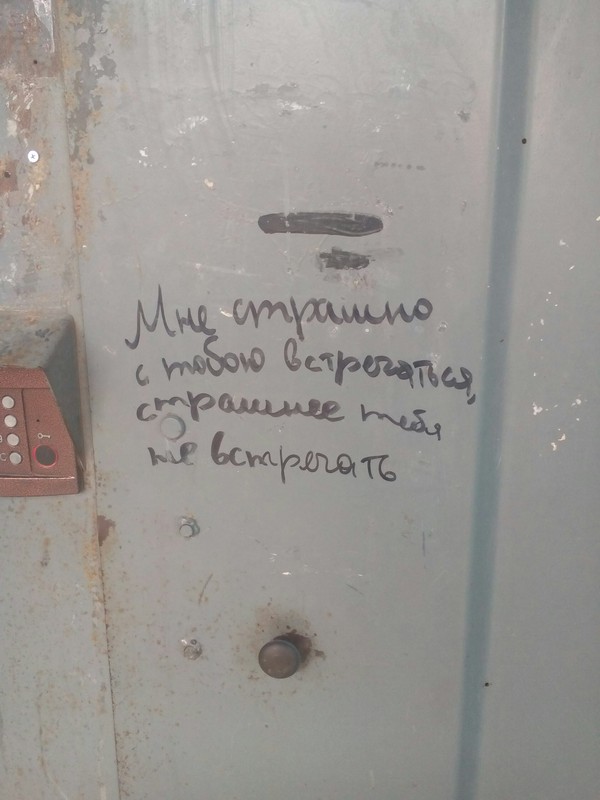 Мне страшно
с тобою встречаться,
страшнее тебя
не встречать